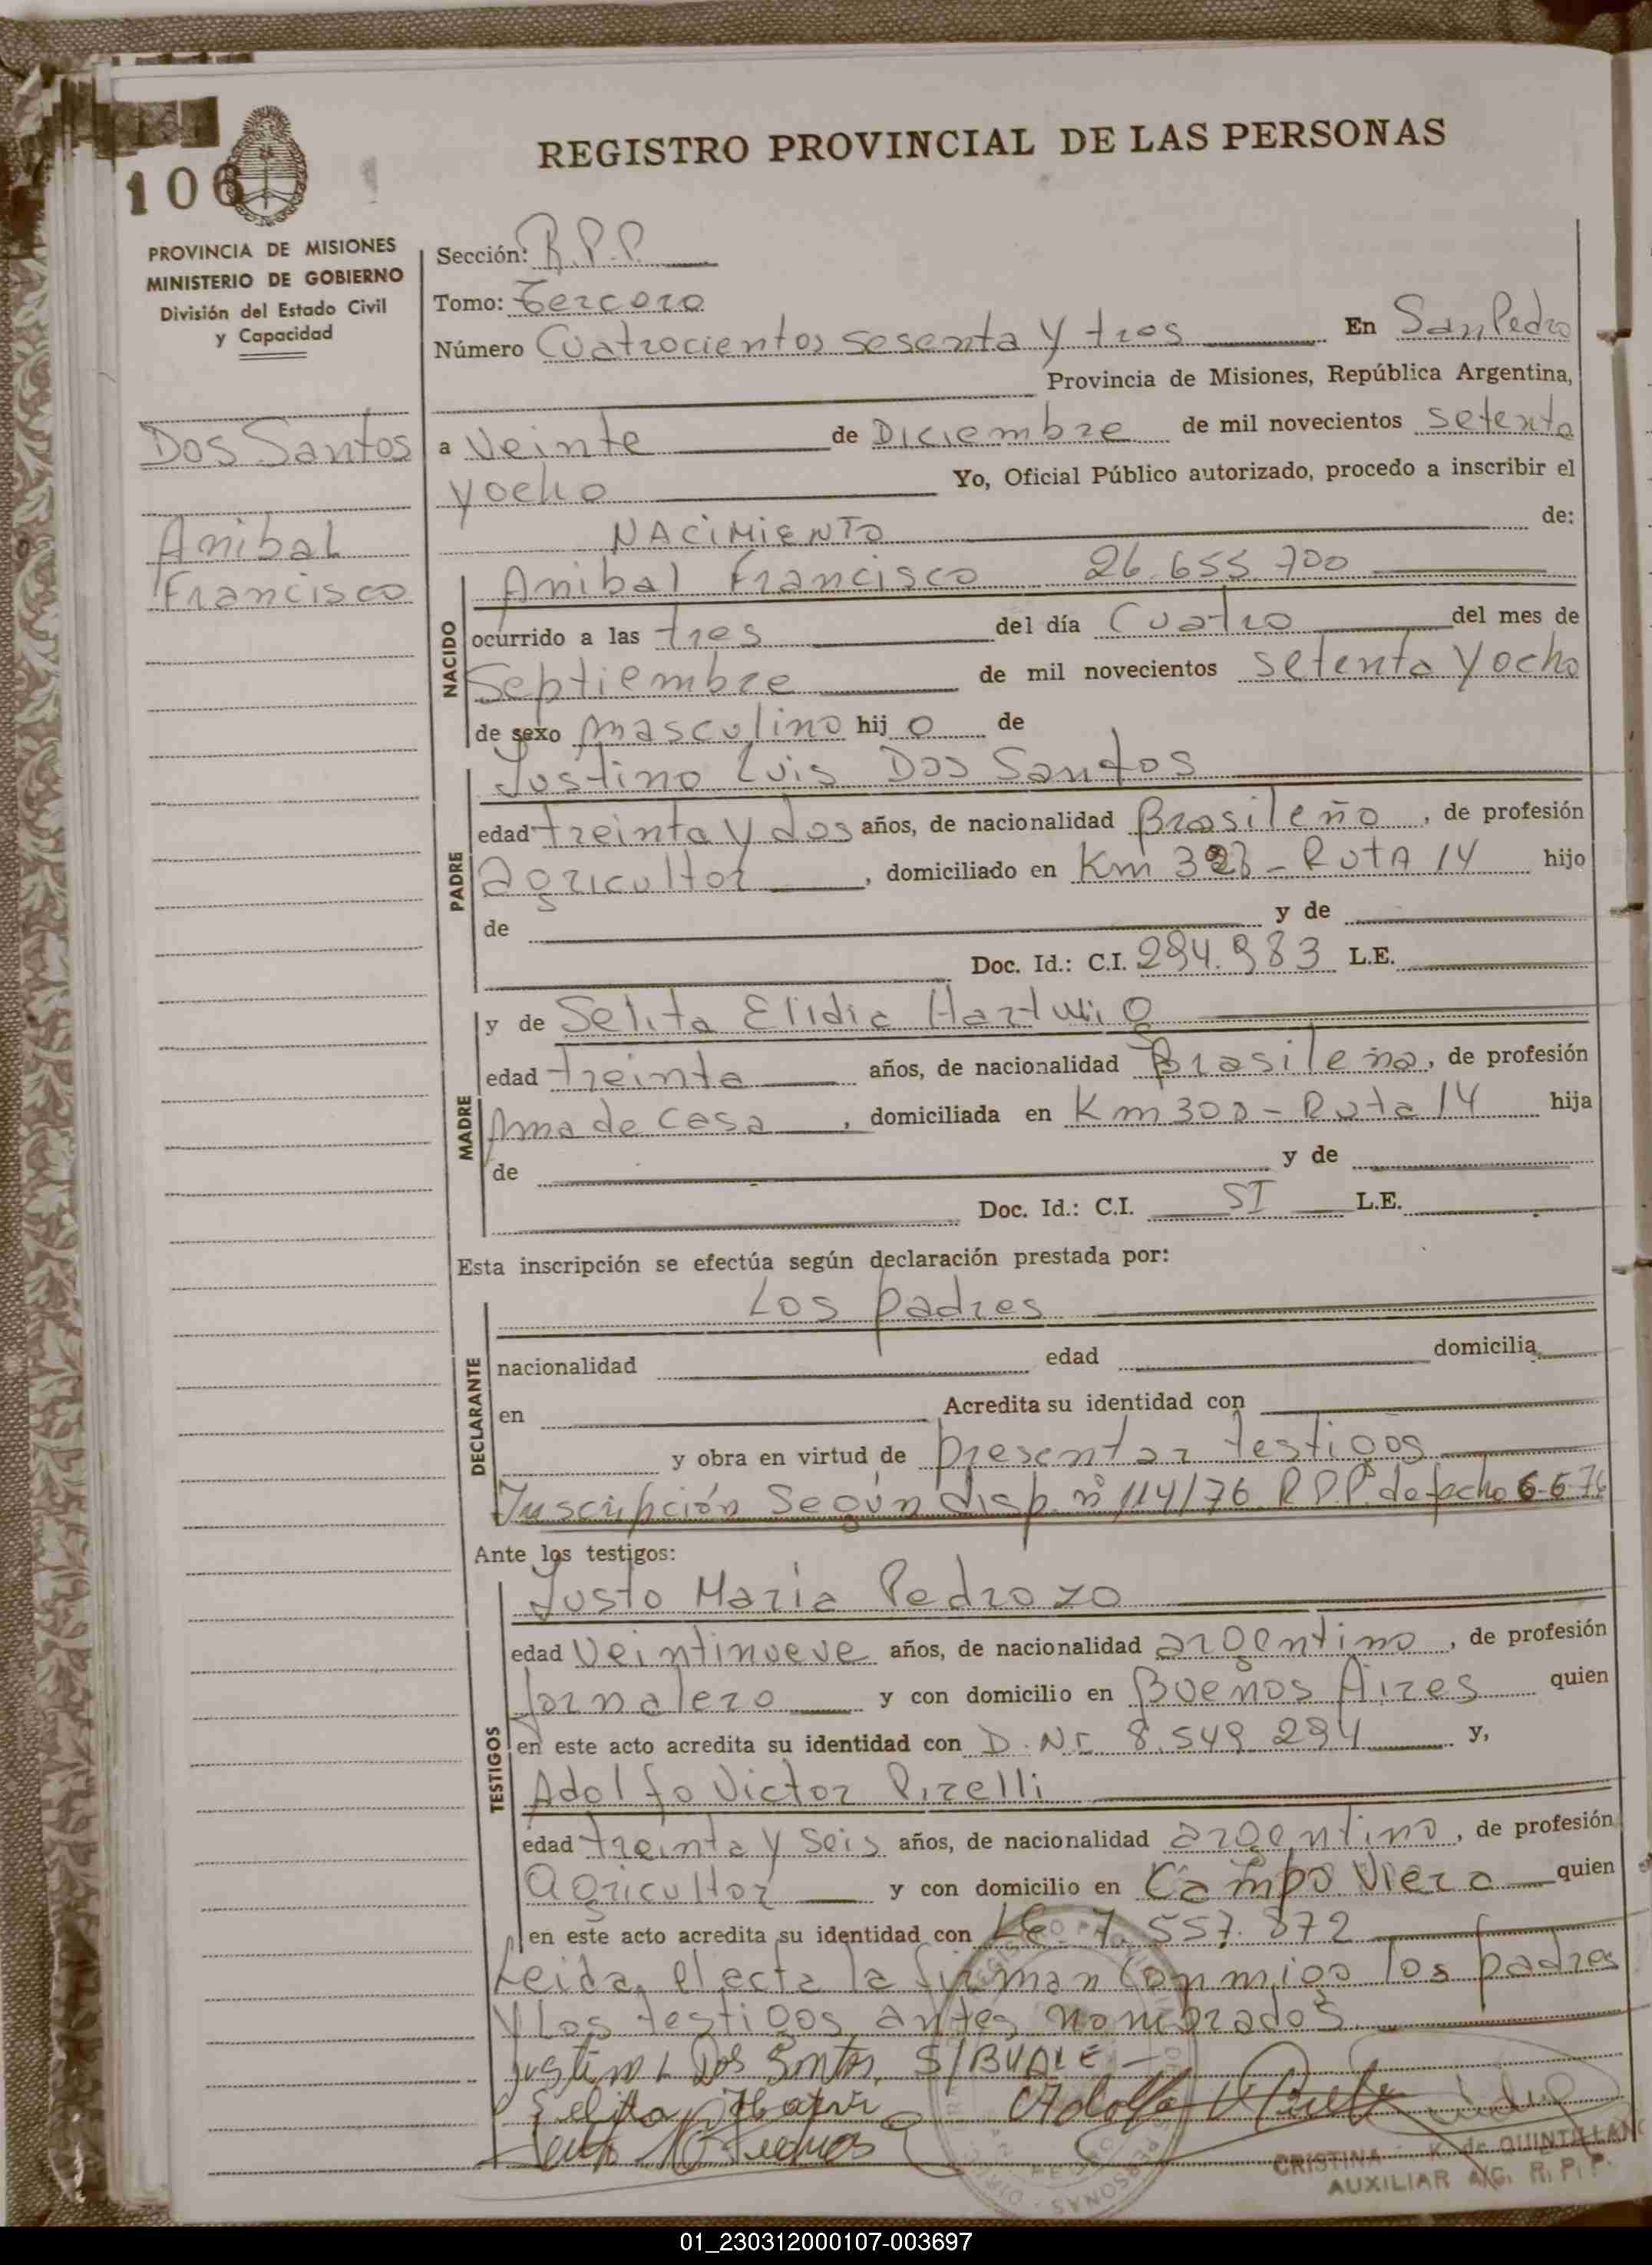 REGISTRO PROVINCIAL DE LAS PERSONAS
106
PROVINCIA DE MISIONES
MINISTERIO DE GOBIERNO
División del Estado Civil
y Capacidad
Dos Santos
Anibal
Francisco
Sección: R.P.P.
Tomo: Tercero
Número Cuatrocientos sesenta y tres En San Pedro
Provincia de Misiones, República Argentina,
a Veinte de Diciembre de mil novecientos setenta
y ocho Yo, Oficial Público autorizado, procedo a inscribir el
NACIMIENTO de:
NACIDO
Anibal Francisco 26.655.700
ocurrido a las tres del día Cuatro del mes de
Septiembre de mil novecientos setenta y ocho
de sexo masculino hijo de
PADRE
Justino Luis Dos Santos
edad treinta y dos años, de nacionalidad Brasileño, de profesión
agricultor, domiciliado en Km - Ruta 14 hijo
de y de
Doc. Id.: C.I. 294.983 L.E.
MADRE
y de Selita Elidia Hartwig
edad treinta años, de nacionalidad Brasileña, de profesión
Ama de casa, domiciliada en Km 300 - Ruta 14 hija
de y de
Doc. Id.: C.I. SI L.E.
Esta inscripción se efectúa según declaración prestada por:
DECLARANTE
Los padres
nacionalidad edad domicilia
en Acredita su identidad con
y obra en virtud de presentar testigos
Inscripción Según disp. nº 114/76 R.P.P. de fecha 6-6-76
Ante los testigos:
TESTIGOS
Justo Maria Pedrozo
edad Veintinueve años, de nacionalidad argentino, de profesión
Jornalero y con domicilio en Buenos Aires quien
en este acto acredita su identidad con D.N.I. 8.549.294 y,
Adolfo Victor Pirelli
edad treinta y seis años, de nacionalidad argentino, de profesión
agricultor y con domicilio en Campo Viera quien
en este acto acredita su identidad con L.E. 7.557.872
Leida el acta la firman conmigo los padres
y Los testigos antes nombrados.
Justino L Dos Santos S/BUALE
Selita
Adolfo V
CRISTINA K. de QUINTILLAN
AUXILIAR A/C. R. P. P.
01_230312000107-003697